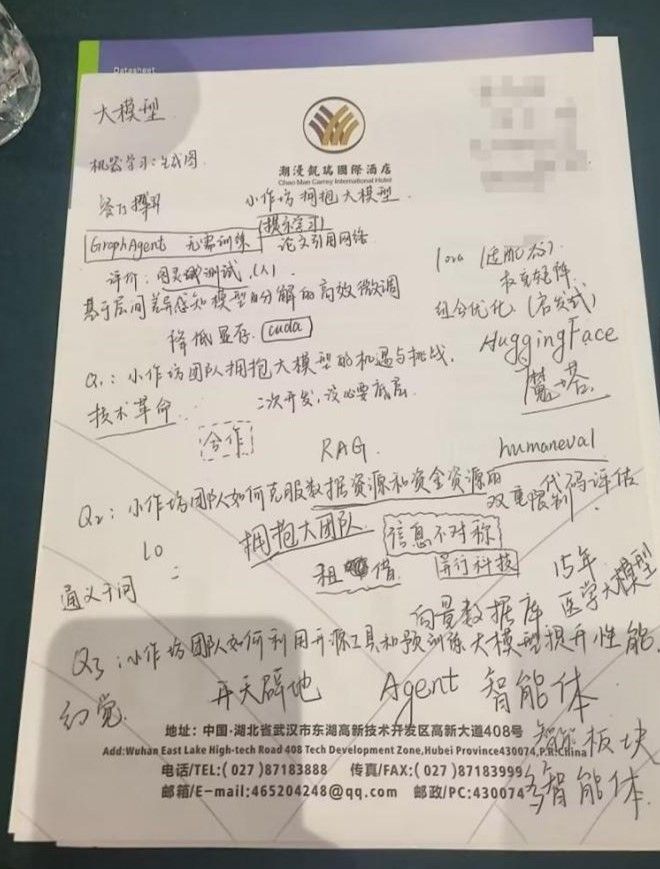 Datasheet
大模型
潮漫凯瑞國際酒店
Chao Man Carrey International Hotel
机器学习:生成图
小作坊拥抱大模型
GraphAgent 无需训练 (提示学习) 论文引用网络
评价:图灵测试.(人)
lora (适配器)
权重矩阵
基于层间差异感知模型分解的高效微调
组合优化.(启发式)
降低显存. cuda
HuggingFace
Q1:小作坊团队拥抱大模型的机遇与挑战.
魔塔.
技术革命 二次开发,没必要底层.
合作 RAG. humaneval
Q2:小作坊团队如何克服数据资源和资金资源的双重限制
代码评估
拥抱大团队. 信息不对称
租 借. 并行科技 15年
通义千问 向量数据库 医学大模型
Q3:小作坊团队如何利用开源工具和预训练大模型提升性能.
幻觉 开天辟地 Agent 智能体
地址:中国·湖北省武汉市东湖高新技术开发区高新大道408号
智能板块
Add:Wuhan East Lake High-tech Road 408 Tech Development Zone,Hubei Province430074,P.R.China
电话/TEL:(027)87183888 传真/FAX:(027)87183999
邮箱/E-mail:465204248@qq.com 邮政/PC:430074
多智能体.